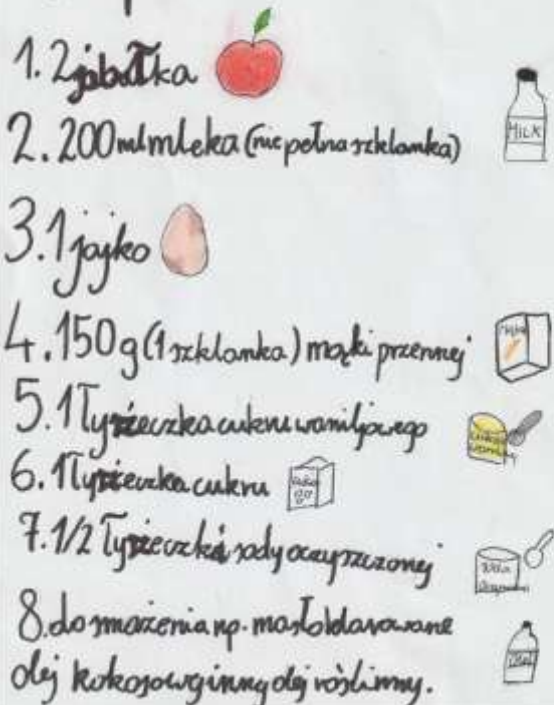 1. 2 jabłka
MILK
2. 200 ml mleka (nie pełna szklanka)
3. 1 jajko
4. 150 g (1 szklanka) mąki przennej
5. 1 łyżeczka cukru waniljowego
6. 1 łyżeczka cukru
7. 1/2 łyżeczki sody oczyszczonej
8. do smażenia np. masło klarowane
olej kokosowy inny olej roślinny.